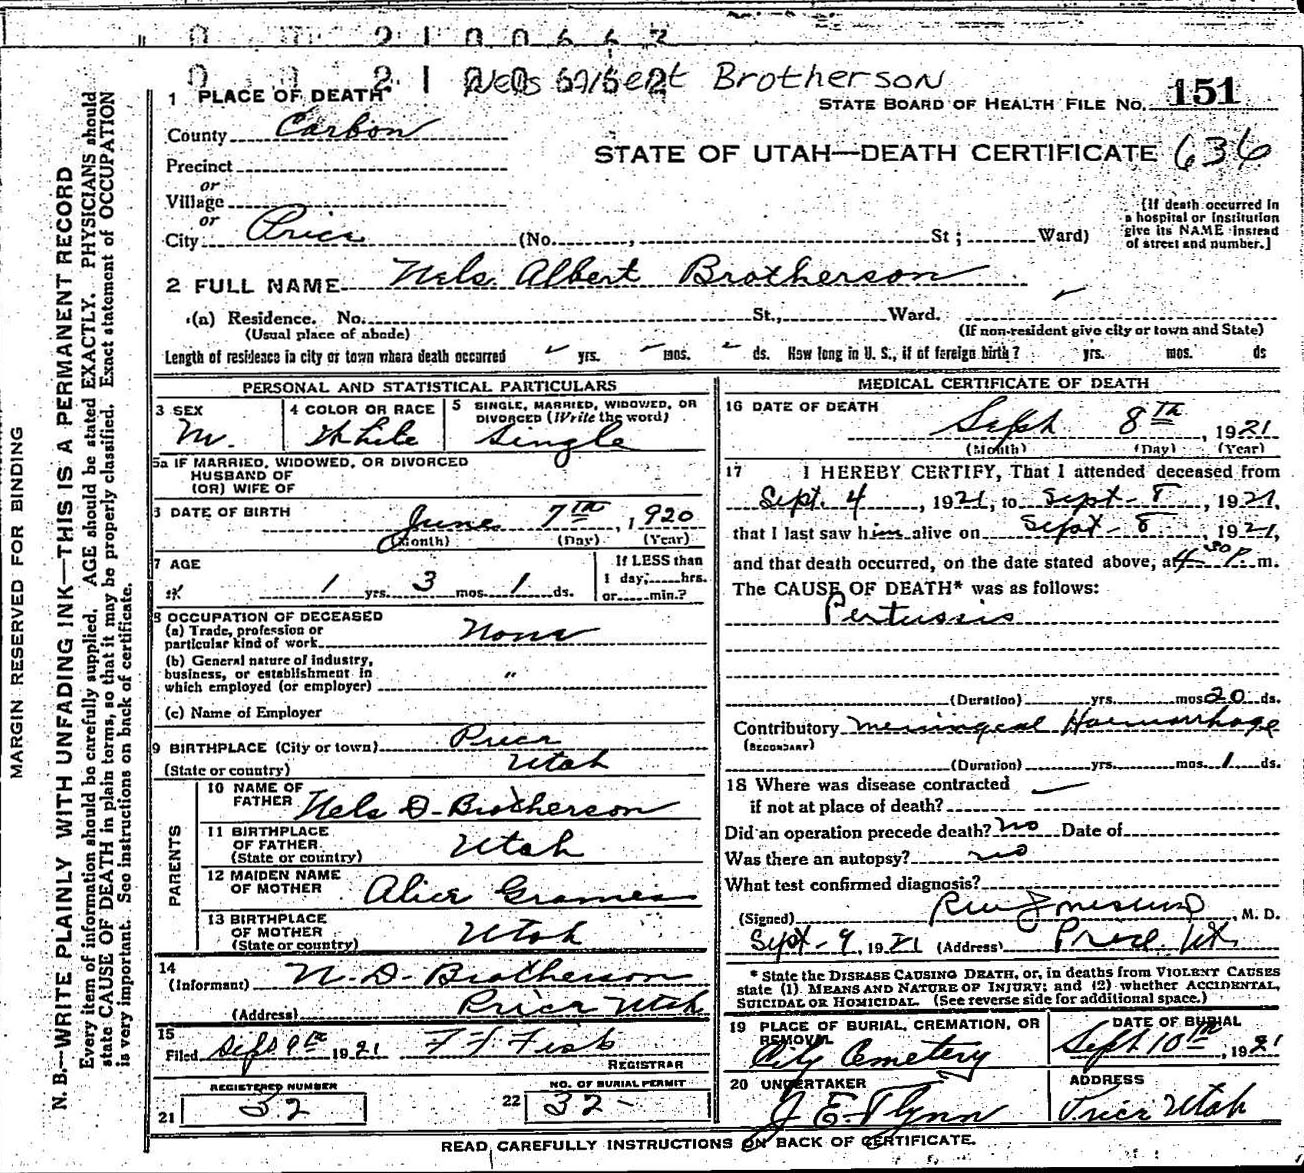 0 0 2 1 0 0 6 6 2
Nels Albert Brotherson
STATE BOARD OF HEALTH FILE NO. 151
STATE OF UTAH—DEATH CERTIFICATE 636
MARGIN RESERVED FOR BINDING
N. B.—WRITE PLAINLY WITH UNFADING INK—THIS IS A PERMANENT RECORD
Every item of information should be carefully supplied. AGE should be stated EXACTLY. PHYSICIANS should
state CAUSE OF DEATH in plain terms, so that it may be properly classified. Exact statement of OCCUPATION
is very important. See instructions on back of certificate.
1 PLACE OF DEATH
County Carbon
Precinct
or
Village
or
City Price (No. , St ; Ward)
[If death occurred in
a hospital or institution
give its NAME instead
of street and number.]
2 FULL NAME Nels Albert Brotherson
(a) Residence. No. St., Ward.
(Usual place of abode) (If non-resident give city or town and State)
Length of residence in city or town where death occurred yrs. mos. ds. How long in U. S., if of foreign birth? yrs. mos. ds
PERSONAL AND STATISTICAL PARTICULARS
3 SEX
M.
4 COLOR OR RACE
White
5 SINGLE, MARRIED, WIDOWED, OR
DIVORCED (Write the word)
Single
5a IF MARRIED, WIDOWED, OR DIVORCED
HUSBAND OF
(OR) WIFE OF
6 DATE OF BIRTH
June 7th, 1920
(Month) (Day) (Year)
7 AGE
1 yrs. 3 mos. 1 ds.
If LESS than
1 day, hrs.
or min.?
8 OCCUPATION OF DECEASED
(a) Trade, profession or
particular kind of work None
(b) General nature of Industry,
business, or establishment in
which employed (or employer) "
(c) Name of Employer
9 BIRTHPLACE (City or town) Price
(State or country) Utah
PARENTS
10 NAME OF
FATHER Nels D. Brotherson
11 BIRTHPLACE
OF FATHER
(State or country) Utah
12 MAIDEN NAME
OF MOTHER Alice Grames
13 BIRTHPLACE
OF MOTHER
(State or country) Utah
14
(Informant) N. D. Brotherson
(Address) Price Utah
15
Filed Sept 9th 1921 F F Fisk
REGISTRAR
REGISTERED NUMBER
21 32
NO. OF BURIAL PERMIT
22 32-
MEDICAL CERTIFICATE OF DEATH
16 DATE OF DEATH
Sept 8th, 1921
(Month) (Day) (Year)
17 I HEREBY CERTIFY, That I attended deceased from
Sept. 4, 1921, to Sept- 8, 1921,
that I last saw him alive on Sept- 8, 1921,
and that death occurred, on the date stated above, at 4 30 P. m.
The CAUSE OF DEATH* was as follows:
Pertussis
(Duration) yrs. mos. 20 ds.
Contributory Meningeal Haemorrhage
(SECONDARY)
(Duration) yrs. mos. 1 ds.
18 Where was disease contracted
if not at place of death?
Did an operation precede death? no Date of
Was there an autopsy? no
What test confirmed diagnosis?
(Signed) , M. D.
Sept-9, 1921 (Address) Price Ut.
* State the DISEASE CAUSING DEATH, or, in deaths from VIOLENT CAUSES
state (1) MEANS AND NATURE OF INJURY; and (2) whether ACCIDENTAL,
SUICIDAL OR HOMICIDAL. (See reverse side for additional space.)
19 PLACE OF BURIAL, CREMATION, OR
REMOVAL
City Cemetery
DATE OF BURIAL
Sept 10th, 1921
20 UNDERTAKER
J E. Flynn
ADDRESS
Price Utah
READ CAREFULLY INSTRUCTIONS ON BACK OF CERTIFICATE.